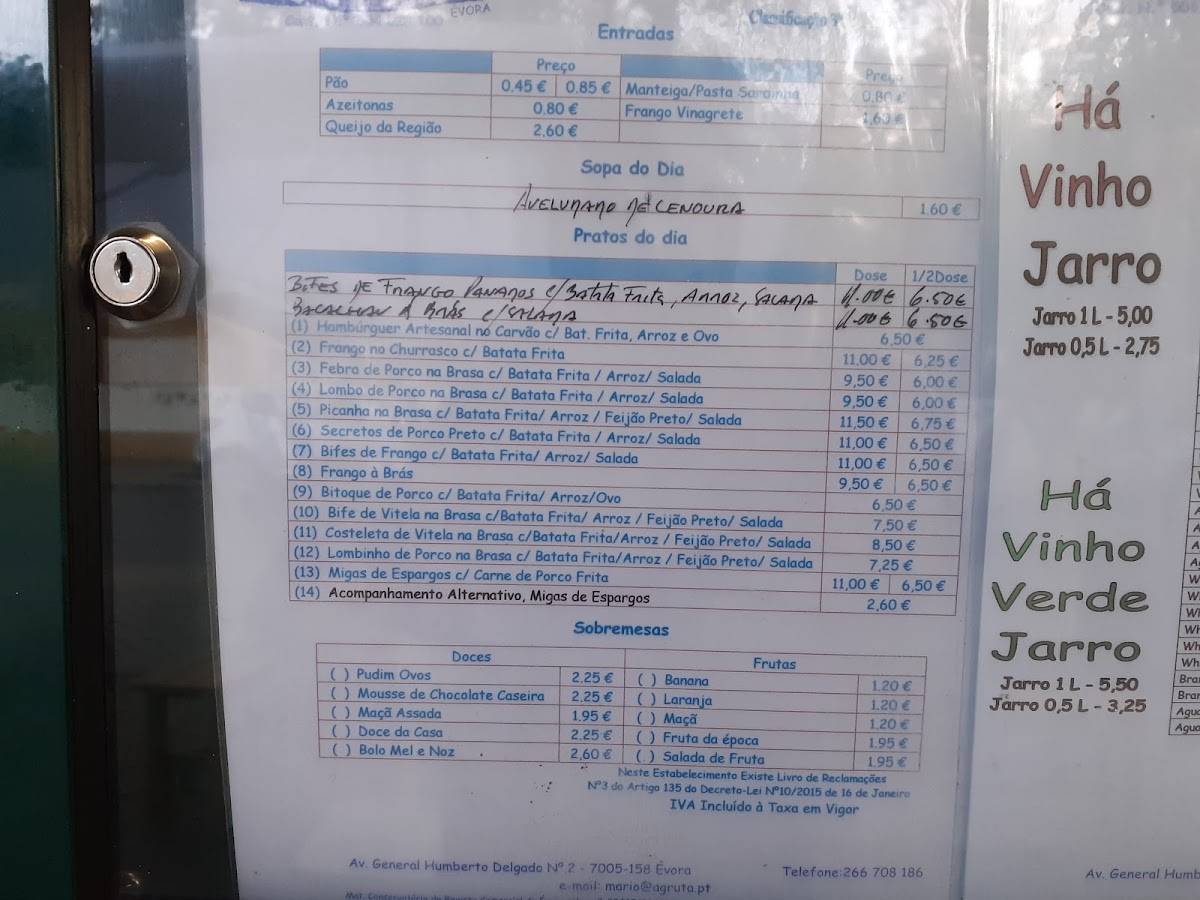 ÉVORA
Classificação 3ª
Entradas
Preço Preço
Pão 0.45 € 0.85 € Manteiga/Pasta Sardinha 0.80 €
Azeitonas 0.80 € Frango Vinagrete 1,60 €
Queijo da Região 2,60 €
Sopa do Dia
AVELUDADO DE CENOURA 1.60 €
Pratos do dia
Dose 1/2Dose
BIFES DE FRANGO PANADOS C/BATATA FRITA, ARROZ, SALADA 11.00€ 6.50€
BACALHAU À BRÁS C/SALADA 11.00€ 6.50€
(1) Hambúrguer Artesanal no Carvão c/ Bat. Frita, Arroz e Ovo 6,50 €
(2) Frango no Churrasco c/ Batata Frita 11,00 € 6,25 €
(3) Febra de Porco na Brasa c/ Batata Frita / Arroz/ Salada 9,50 € 6,00 €
(4) Lombo de Porco na Brasa c/ Batata Frita / Arroz/ Salada 9,50 € 6,00 €
(5) Picanha na Brasa c/ Batata Frita/ Arroz / Feijão Preto/ Salada 11,50 € 6,75 €
(6) Secretos de Porco Preto c/ Batata Frita / Arroz/ Salada 11,00 € 6,50 €
(7) Bifes de Frango c/ Batata Frita/ Arroz/ Salada 11,00 € 6,50 €
(8) Frango à Brás 9,50 € 6,50 €
(9) Bitoque de Porco c/ Batata Frita/ Arroz/Ovo 6,50 €
(10) Bife de Vitela na Brasa c/Batata Frita/ Arroz / Feijão Preto/ Salada 7,50 €
(11) Costeleta de Vitela na Brasa c/Batata Frita/Arroz / Feijão Preto/ Salada 8,50 €
(12) Lombinho de Porco na Brasa c/ Batata Frita/Arroz / Feijão Preto/ Salada 7,25 €
(13) Migas de Espargos c/ Carne de Porco Frita 11,00 € 6,50 €
(14) Acompanhamento Alternativo, Migas de Espargos 2,60 €
Sobremesas
Doces Frutas
( ) Pudim Ovos 2,25 € ( ) Banana 1.20 €
( ) Mousse de Chocolate Caseira 2,25 € ( ) Laranja 1.20 €
( ) Maçã Assada 1.95 € ( ) Maçã 1.20 €
( ) Doce da Casa 2,25 € ( ) Fruta da época 1.95 €
( ) Bolo Mel e Noz 2,60 € ( ) Salada de Fruta 1.95 €
Neste Estabelecimento Existe Livro de Reclamações
Nº3 do Artigo 135 do Decreto-Lei Nº10/2015 de 16 de Janeiro
IVA Incluído à Taxa em Vigor
Av. General Humberto Delgado Nº 2 - 7005-158 Évora Telefone:266 708 186
e-mail: mario@agruta.pt
Há
Vinho
Jarro
Jarro 1 L - 5,00
Jarro 0,5 L - 2,75
Há
Vinho
Verde
Jarro
Jarro 1 L - 5,50
Jarro 0,5 L - 3,25
Av. General Humb
Wh
Wh
Wh
Bran
Bran
Agua
Agua